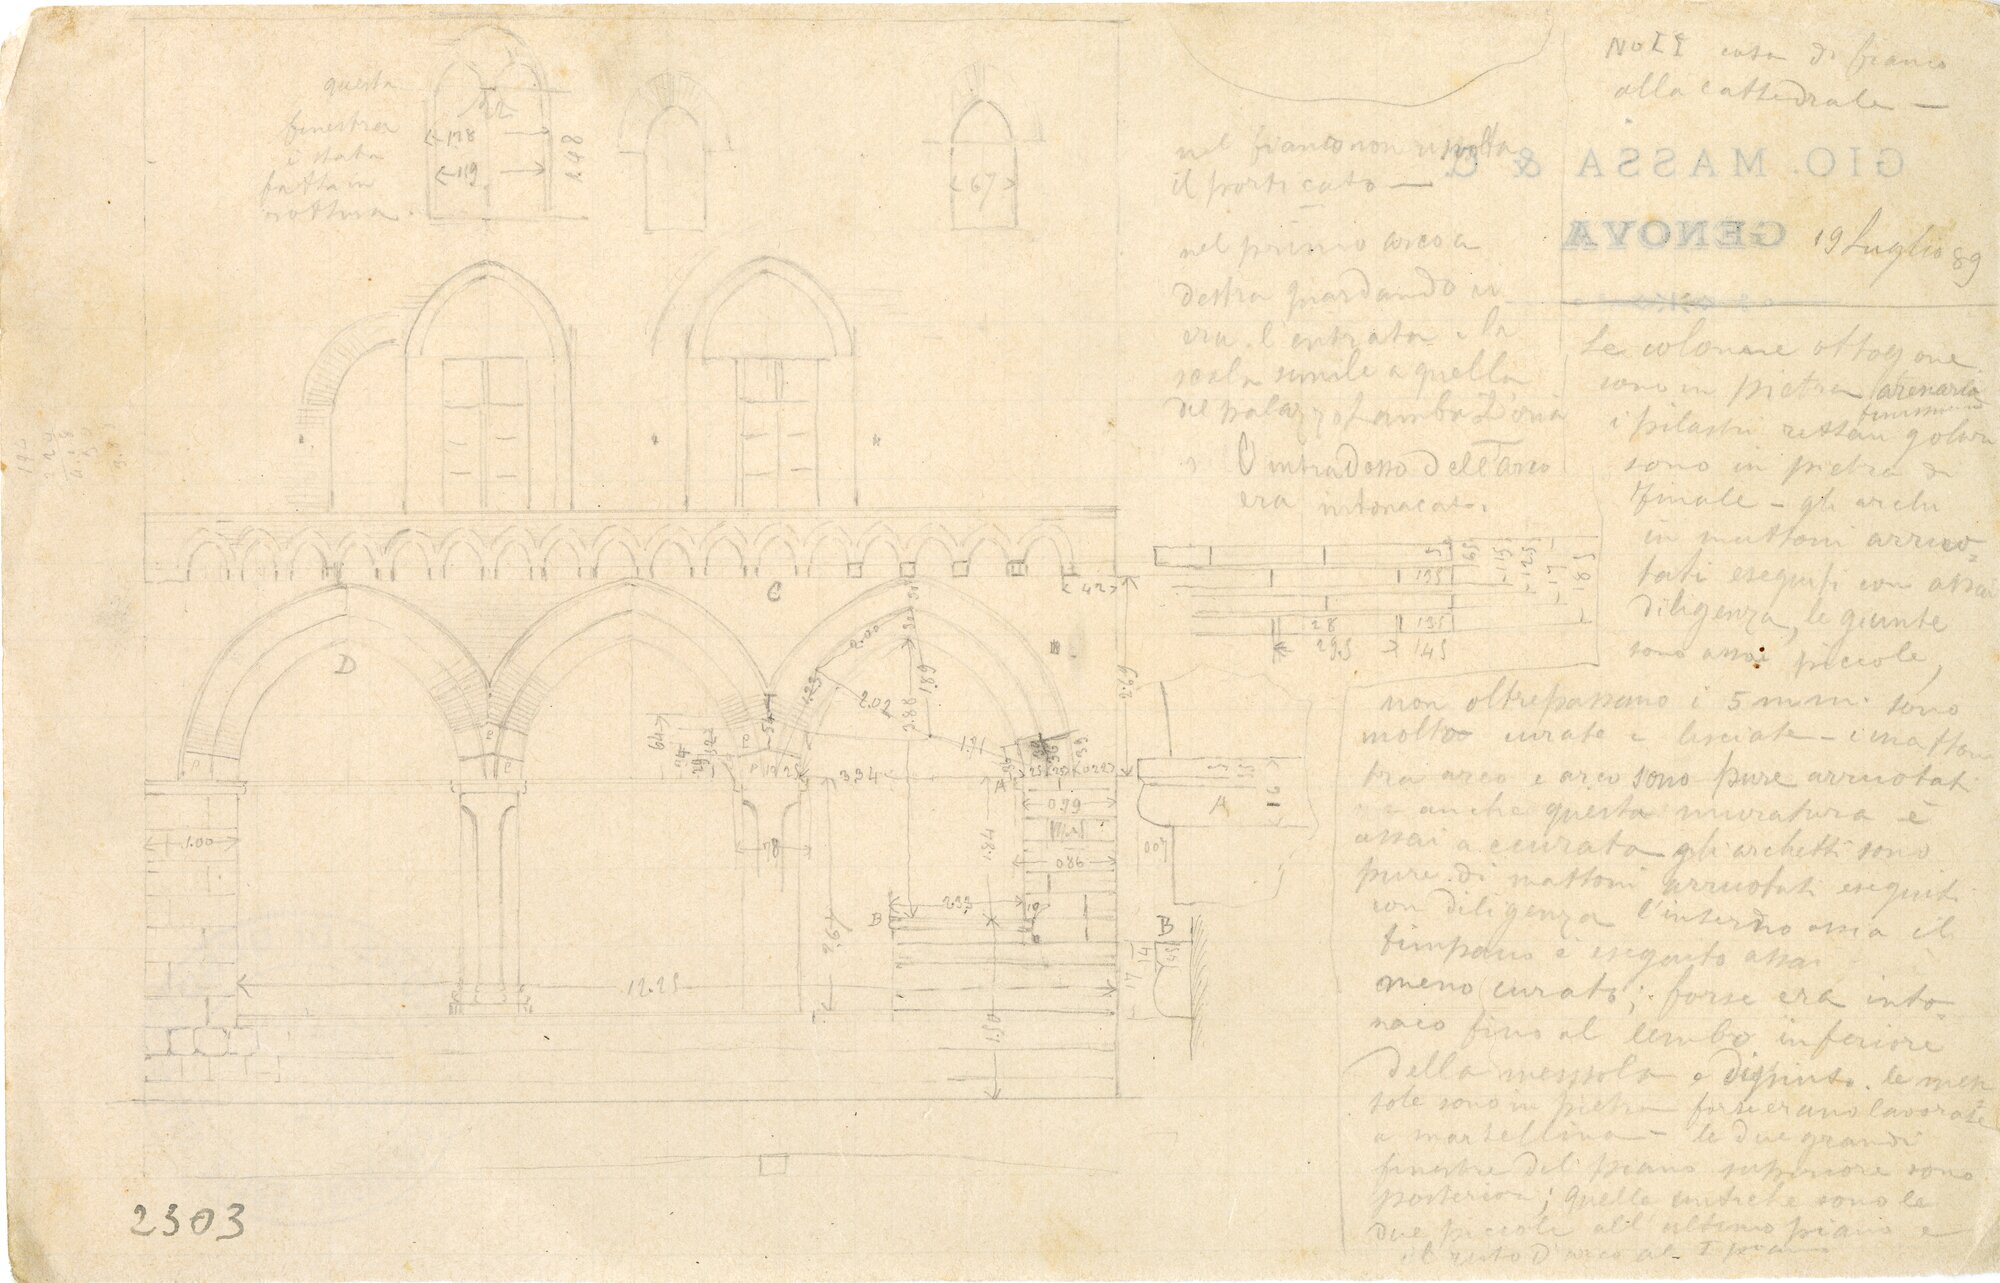 NOLI casa di fianco
alla cattedrale —
GIO. MASSA & C.
GENOVA
19 Luglio 89
questa
finestra
è stata
fatta in
rottura
22
118
119
1.48
67
nel fianco non risvolta
il porticato —
nel primo arco a
destra guardando vi
era l'entrata e la
scala simile a quella
del palazzo Lamba Doria
L'intradosso dell'arco
era intonacato.
Le colonne ottagone
sono in pietra arenaria
finissima
i pilastri rettangolari
sono in pietra di
Finale – gli archi
in mattoni arruo-
tati eseguiti con assai
diligenza, le giunte
sono assai piccole,
non oltrepassano i 5 mm. sono
molto curate e lisciate – i mattoni
tra arco e arco sono pure arruotati
anche questa muratura è
assai accurata gli archetti sono
pure di mattoni arruotati eseguiti
con diligenza l'interno ossia il
timpano è eseguito assai
meno curato; forse era into-
naco fino al lembo inferiore
della mensola e dipinto. le men
sole sono in pietra forse erano lavorate
a martellina – le due grandi
finestre del piano superiore sono
posteriori; quelle antiche sono le
due piccole all'ultimo piano e
il resto d'arco al I piano
C
D
42
2.00
1.23
2.02
3.88
1.89
1.71
2.69
64
54
334
A
0.79
086
1.84
233
B
1.00
78
2.67
12.25
1.50
135
28
135
29.5
145
185
A
B
17
14
2303